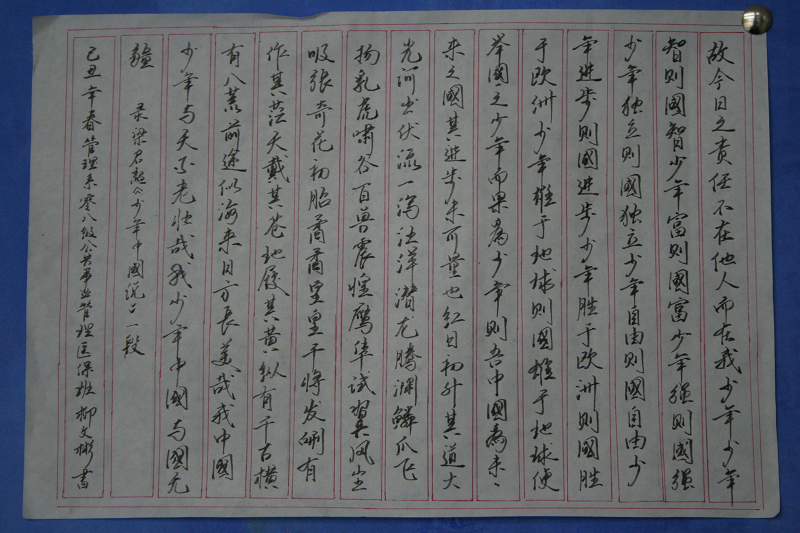 故今日之责任不在他人而在我少年少年
智则國智少年富则國富少年强则國强
少年独立则國独立少年自由则國自由少
年进步则國进步少年胜于欧洲则國胜
于欧洲少年雄于地球则國雄于地球使
举國之少年而果为少年则吾中國为未〻
来之國其进步未可量也红日初升其道大
光河出伏流一泻汪洋潜龙腾渊鳞爪飞
扬乳虎啸谷百兽震惶鹰隼试翼风尘
吸张奇花初胎矞矞皇皇干将发硎有
作其芒天戴其苍地履其黄纵有千古横
有八荒前途似海来日方长美哉我中國
少年与天不老壮哉我少年中國与國无
疆 录梁启超公少年中國说之一段
己丑年春管理系零八级公共事业管理医保班柳文彬书